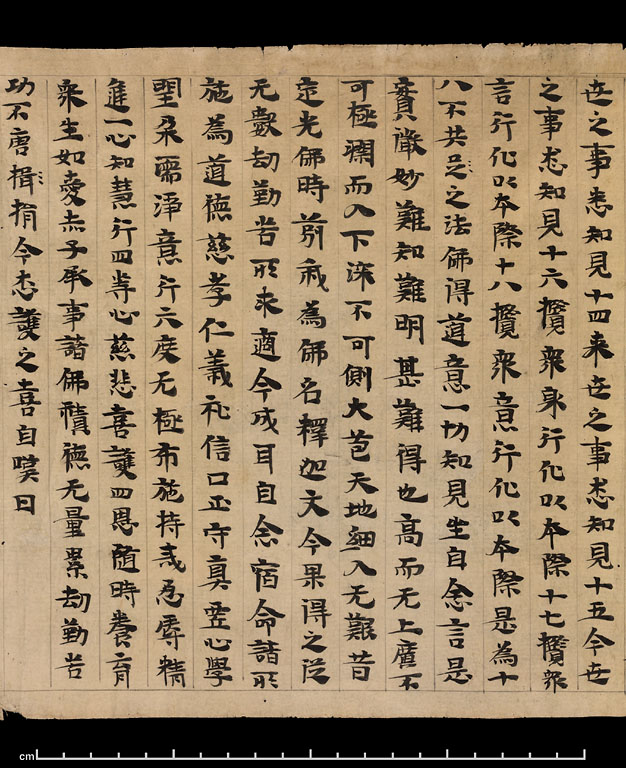 世之事悉知見十四来世之事悉知見十五今世
之事悉知見十六攬衆身行化以本際十七攬衆
言行化以本際十八攬衆意行化以本際是為十
八不共足之法佛得道意一切知見坐自念言是
實徵妙難知難明甚難得也高而无上廣不
可極淵而入下深不可側大苞天地細入无艱昔
定光佛時莂我為佛名釋迦文今果得之從
无數劫勤苦所求適今成耳自念宿命諸所
施為道德慈孝仁義礼信口正守真虚心學
聖柔濡淨意行六度无極布施持戒忍辱精
進一心知慧行四等心慈悲喜護四恩随時養育
衆生如愛赤子承事諸佛積德无量累劫勤苦
功不唐捐今悉護之喜自嘆曰
cm